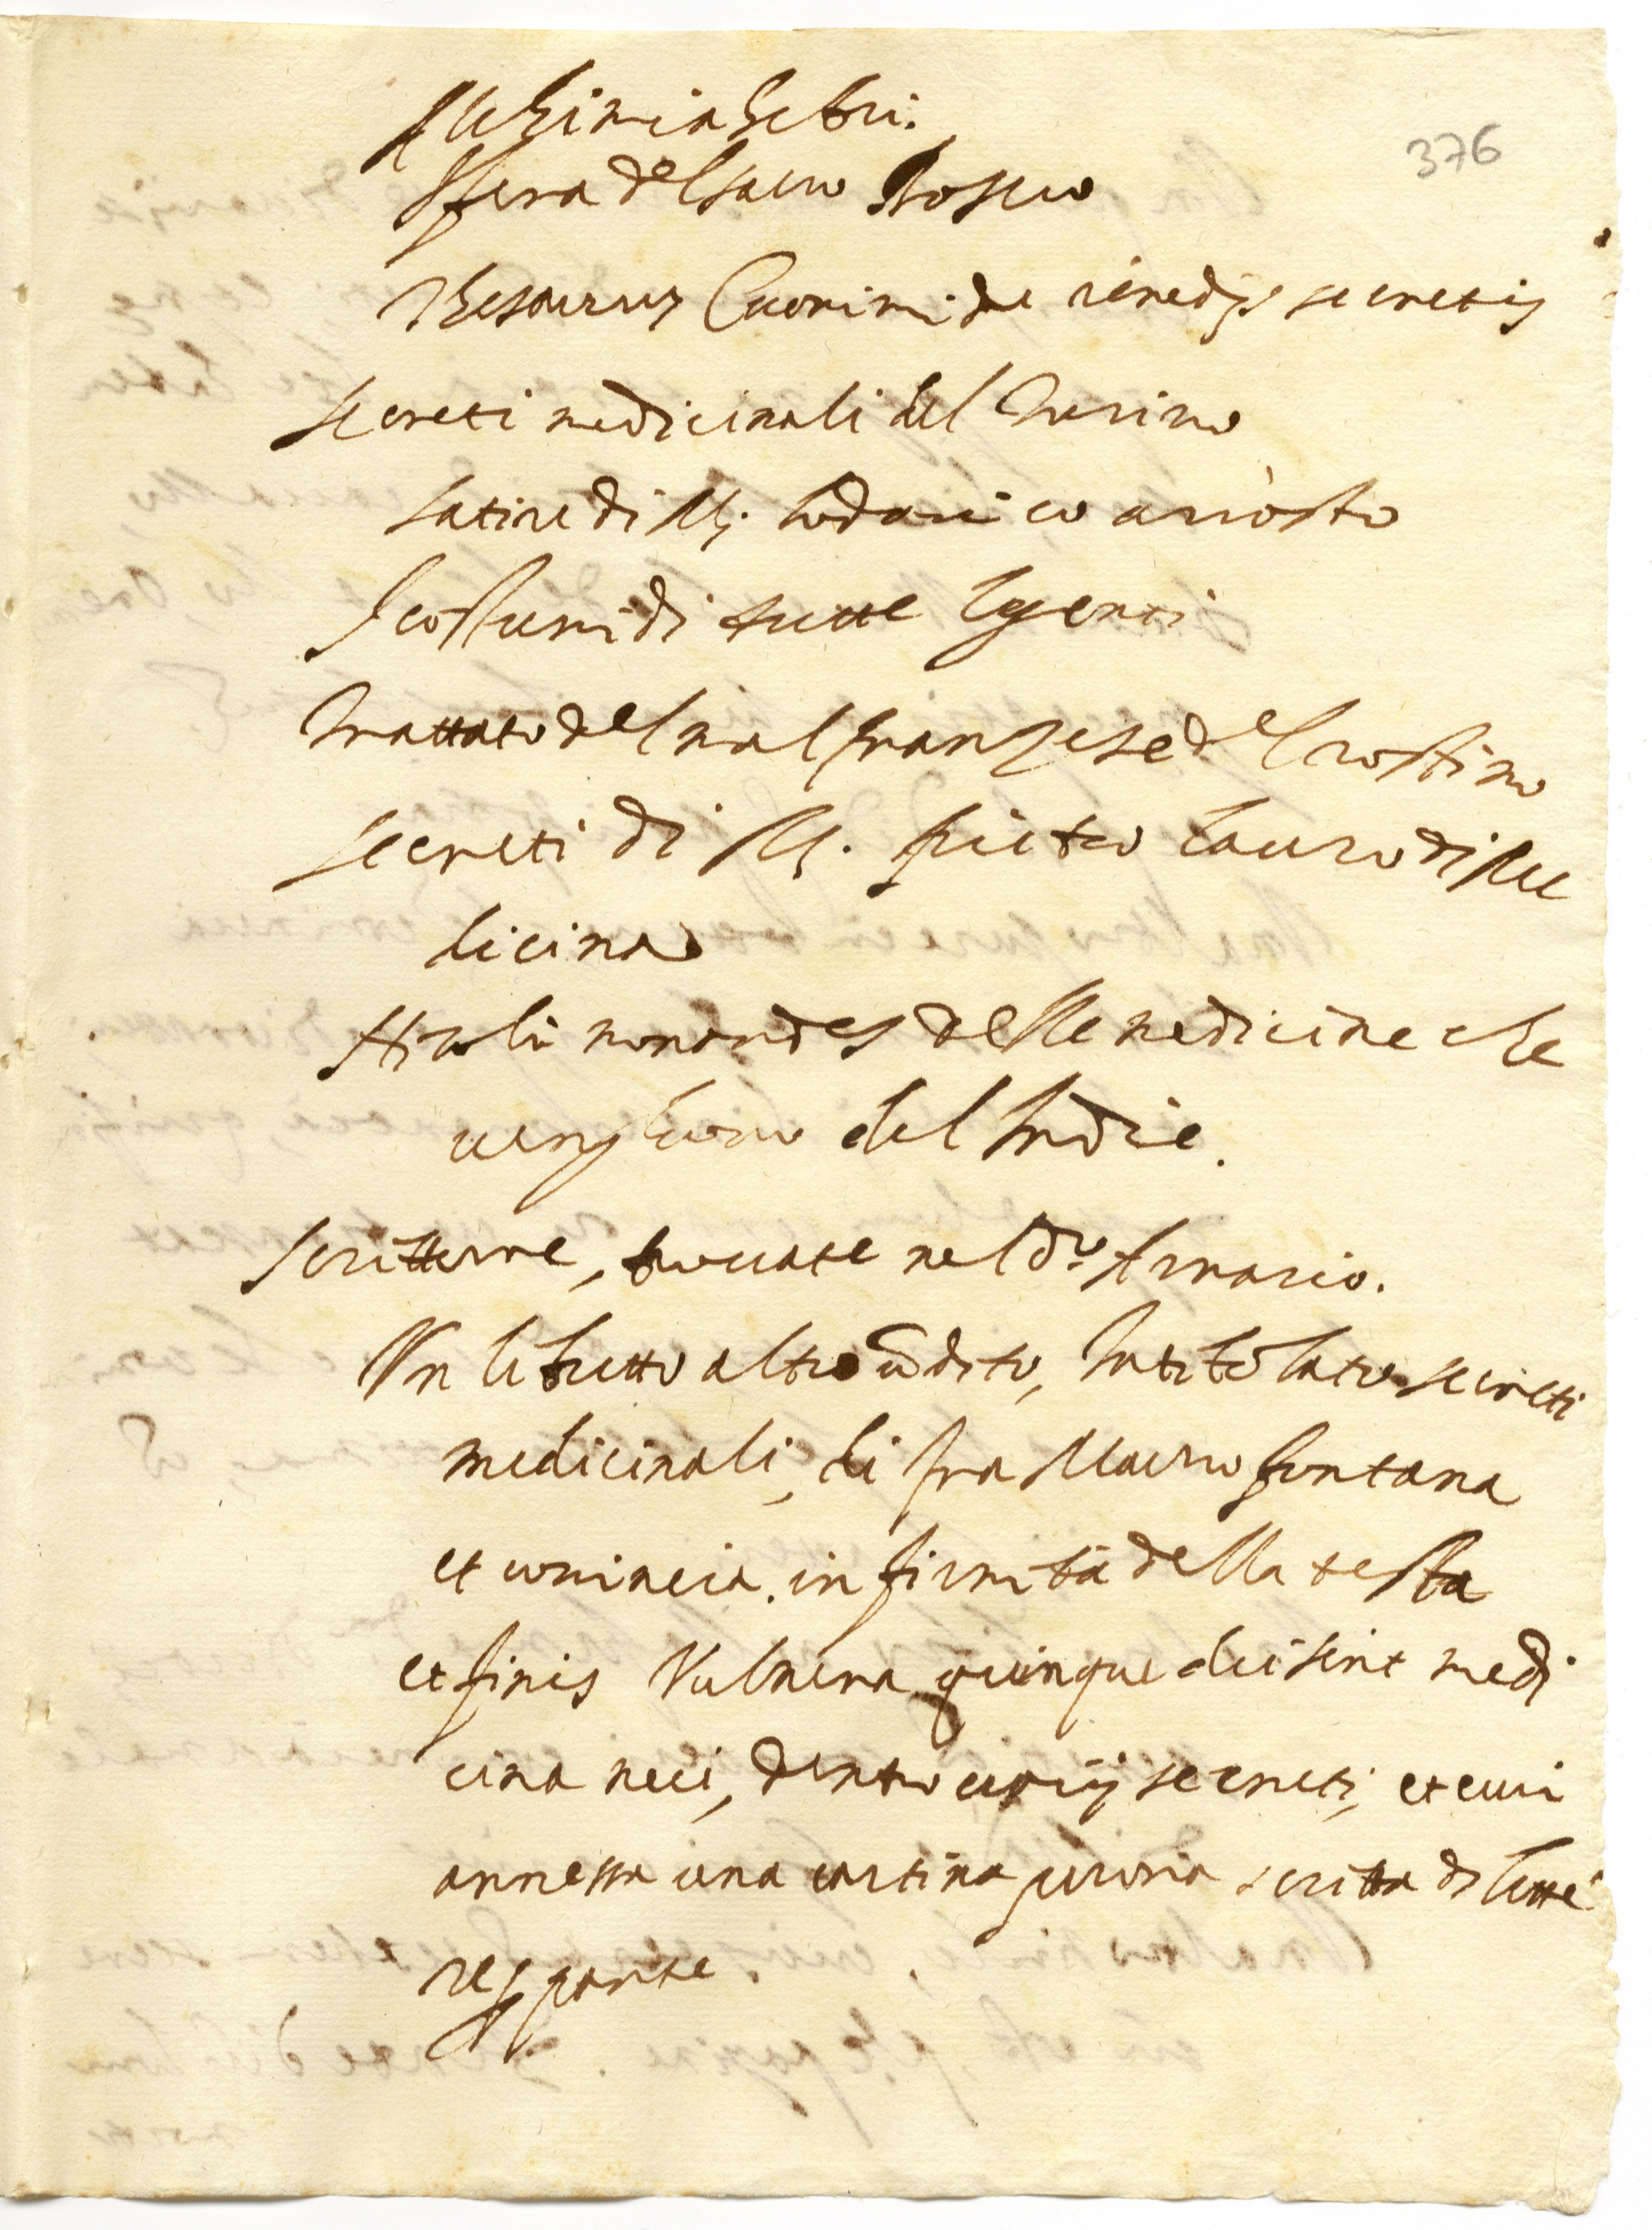 376
Alchimia Gebri.
Sfera del sacro Bosco
Thesaurus Euonimi de remedijs secretis
secreti medicinali del
Satire di M. Lodauico ariosto
I costumi di tutte le genti
Trattato del mal franzese del rostino
secreti di M. pietro bauro di Me
dicina
Nicolò monardes delle medicine che
uenghono del Indie.
Scritture, trouate nel do Armario.
Vn libretto altro cõdito, Intitolato secreti
medicinali, di fra Mauro fontana
et comincia. infirmita della testa
et finis Vulnera quinque dei sint medi
cina mei, dentro secreti, et cui
annessa una cartina scritta di lette
re parte.